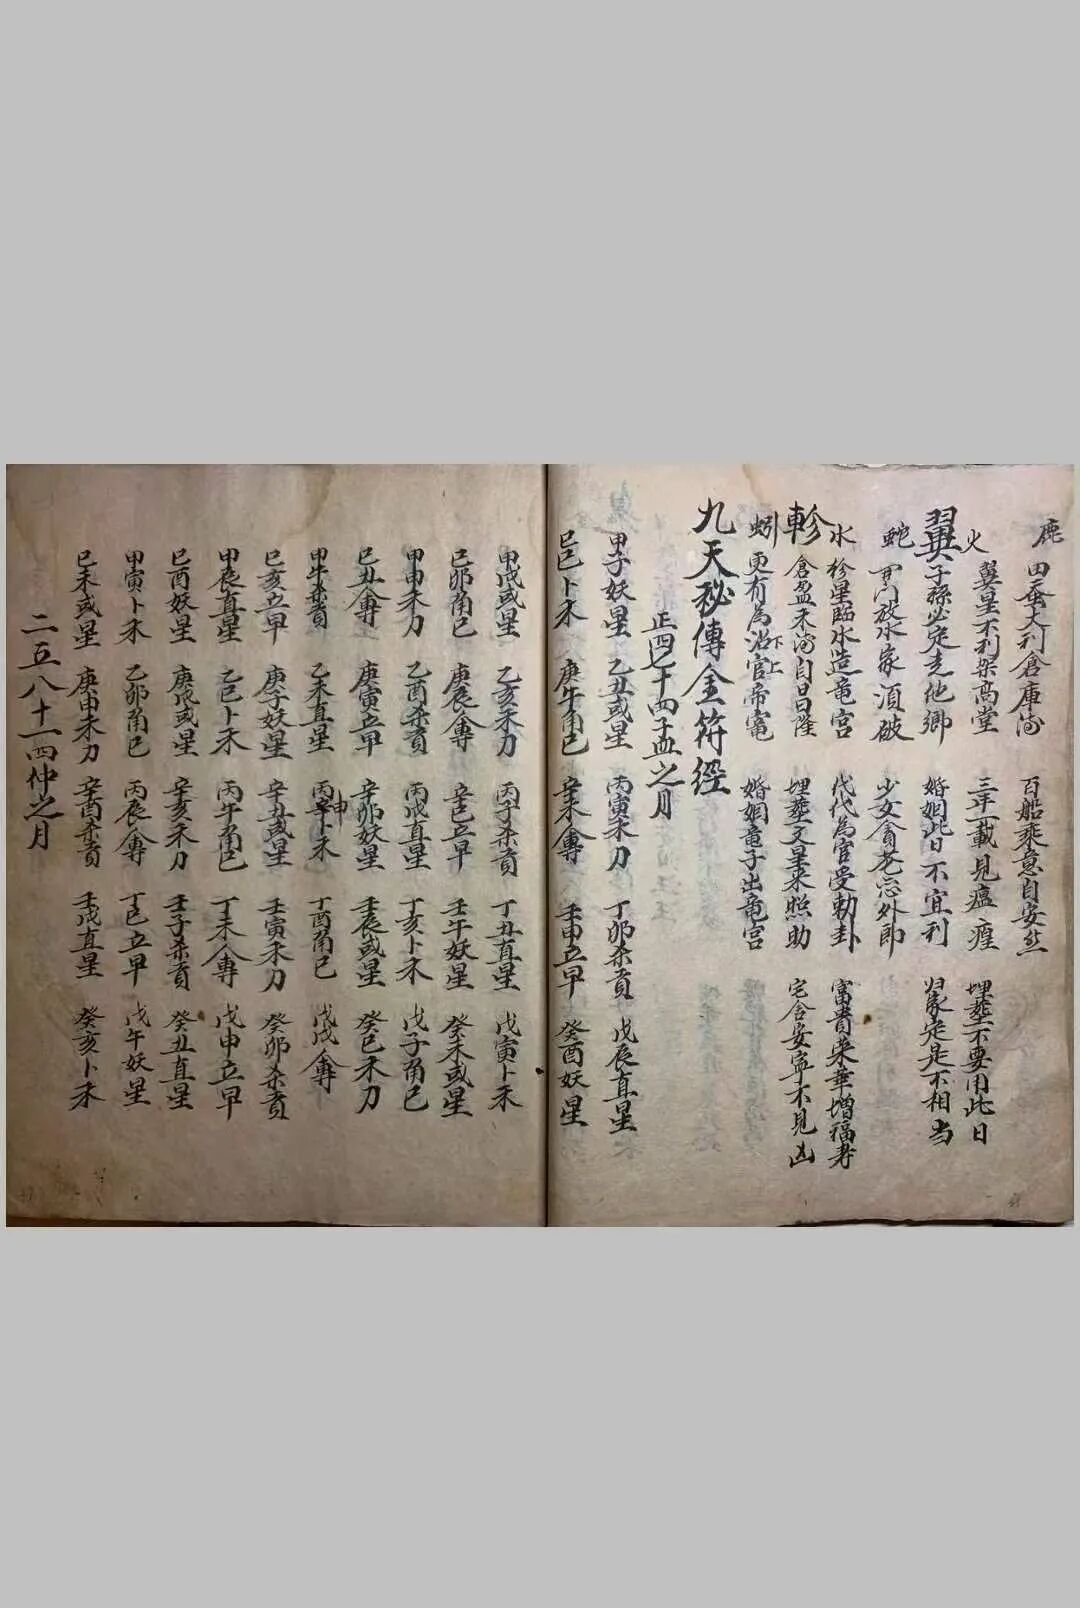 鹿
田蚕大利倉庫滿 百船乘意自安然
火 翼星不利架高堂 三年二載見瘟㾮 埋塟不要用此日
翼 子孫必定走他鄉 婚姻此日不宜利 归家定是不相当
蛇 開門放水家須破 少女貪花忘外郎
水 軫星臨水造竜宫 代代為官受勅卦 富貴来垂增福寿
軫 倉盈禾滿自日隆 埋塟文星来照助 宅舍安寧不見凶
蚓 更有為沿官帝寵 婚姻竜子出竜宫
下上
九天秘傳金符經
正四七十四孟之月
甲子妖星 乙丑或星 丙寅禾刀 丁卯杀貢 戊辰直星
己巳卜禾 庚午角己 辛未人專 壬申立早 癸酉妖星
甲戌或星 乙亥禾刀 丙子杀貢 丁丑直星 戊寅卜禾
己卯角己 庚辰人專 辛巳立早 壬午妖星 癸未或星
甲申禾刀 乙酉杀貢 丙戌直星 丁亥卜禾 戊子角己
己丑人專 庚寅立早 辛卯妖星 壬辰或星 癸巳禾刀
甲午杀貢 乙未直星 丙申卜禾 丁酉角己 戊戌人專
己亥立早 庚子妖星 辛丑或星 壬寅禾刀 癸卯杀貢
甲辰直星 乙巳卜禾 丙午角己 丁未人專 戊申立早
己酉妖星 庚戌或星 辛亥禾刀 壬子杀貢 癸丑直星
甲寅卜禾 乙卯角己 丙辰人專 丁巳立早 戊午妖星
己未或星 庚申禾刀 辛酉杀貢 壬戌直星 癸亥卜禾
二五八十一四仲之月